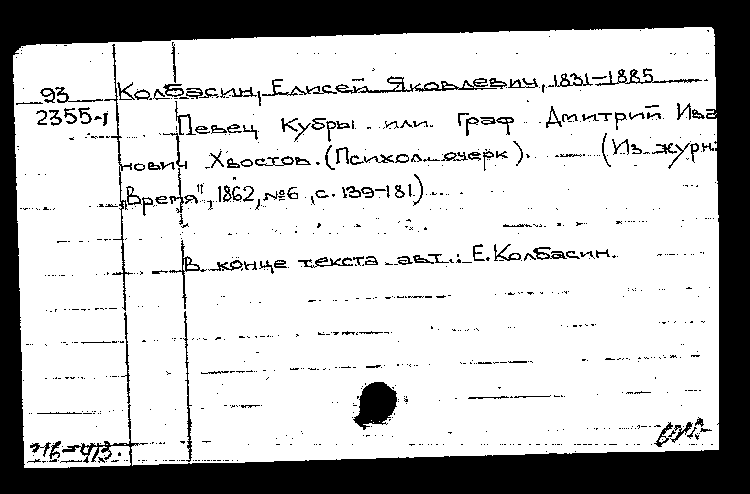 93 Колбасин, Елисей Яковлевич, 1831-1885
2355-1 Певец Кубры или Граф Дмитрий Ива
нович Хвостов. (Психол. очерк). — (Из журн.
„Время", 1862, №6, с. 139-181)
В конце текста авт.: Е. Колбасин.